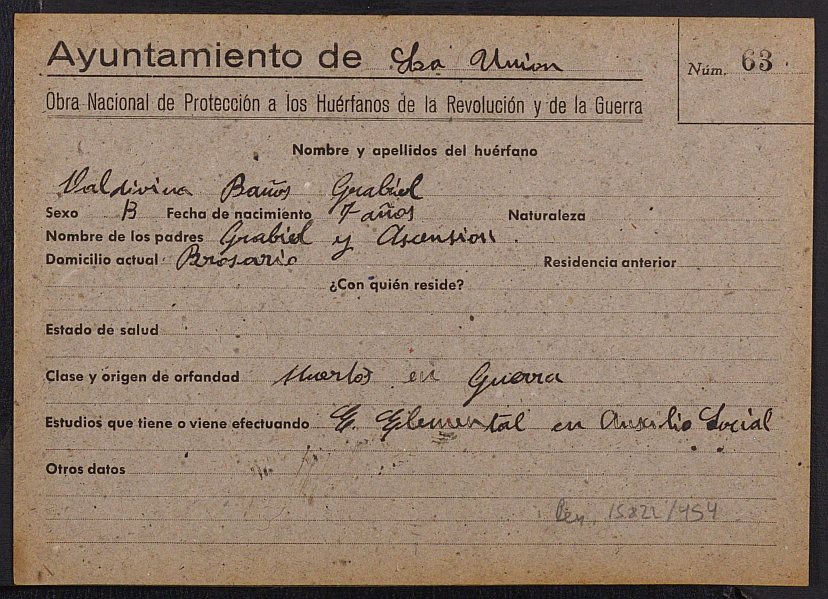 Ayuntamiento de La Union
Núm. 63
Obra Nacional de Protección a los Huérfanos de la Revolución y de la Guerra
Nombre y apellidos del huérfano
Valdivina Baños Grabiel
Sexo Fecha de nacimiento 7 años Naturaleza
Nombre de los padres Grabiel y Ascension
Domicilio actual Brosario Residencia anterior
¿Con quién reside?
Estado de salud
Clase y origen de orfandad Muertos en Guerra
Estudios que tiene o viene efectuando E. Elemental en Auxilio Social
Otros datos
15822/454